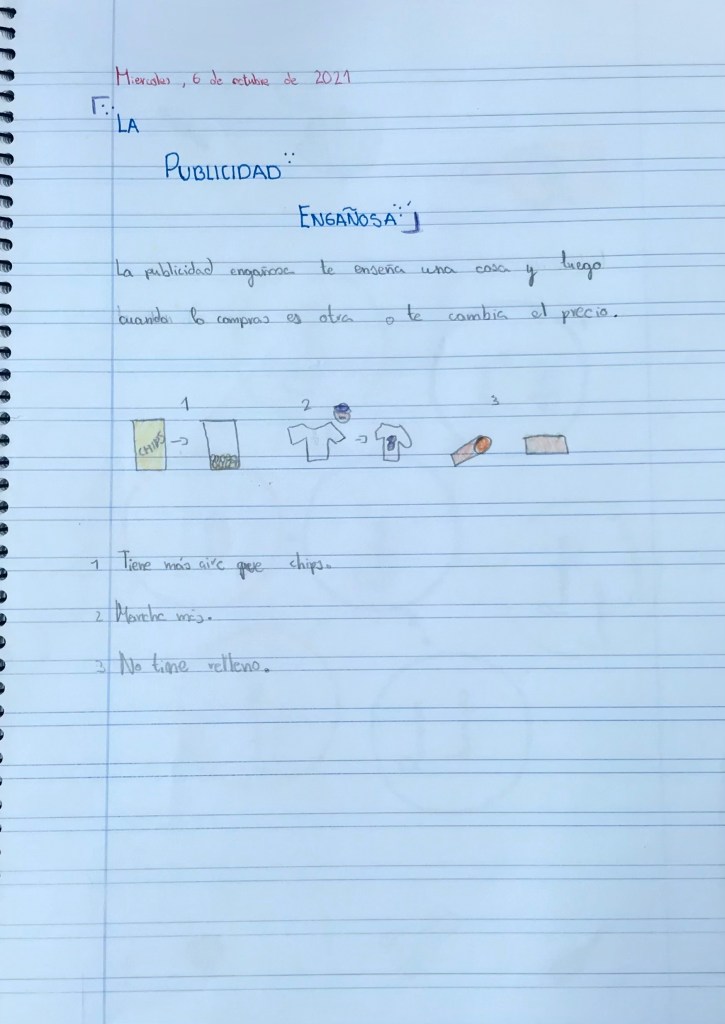 Miercoles, 6 de octubre de 2021
LA
PUBLICIDAD
ENGAÑOSA
La publicidad engañosa te enseña una cosa y luego
cuando lo compras es otra o te cambia el precio.
1 2 3
CHIPS
1 Tiene más aire que chips.
2 Mancha más.
3 No tiene relleno.